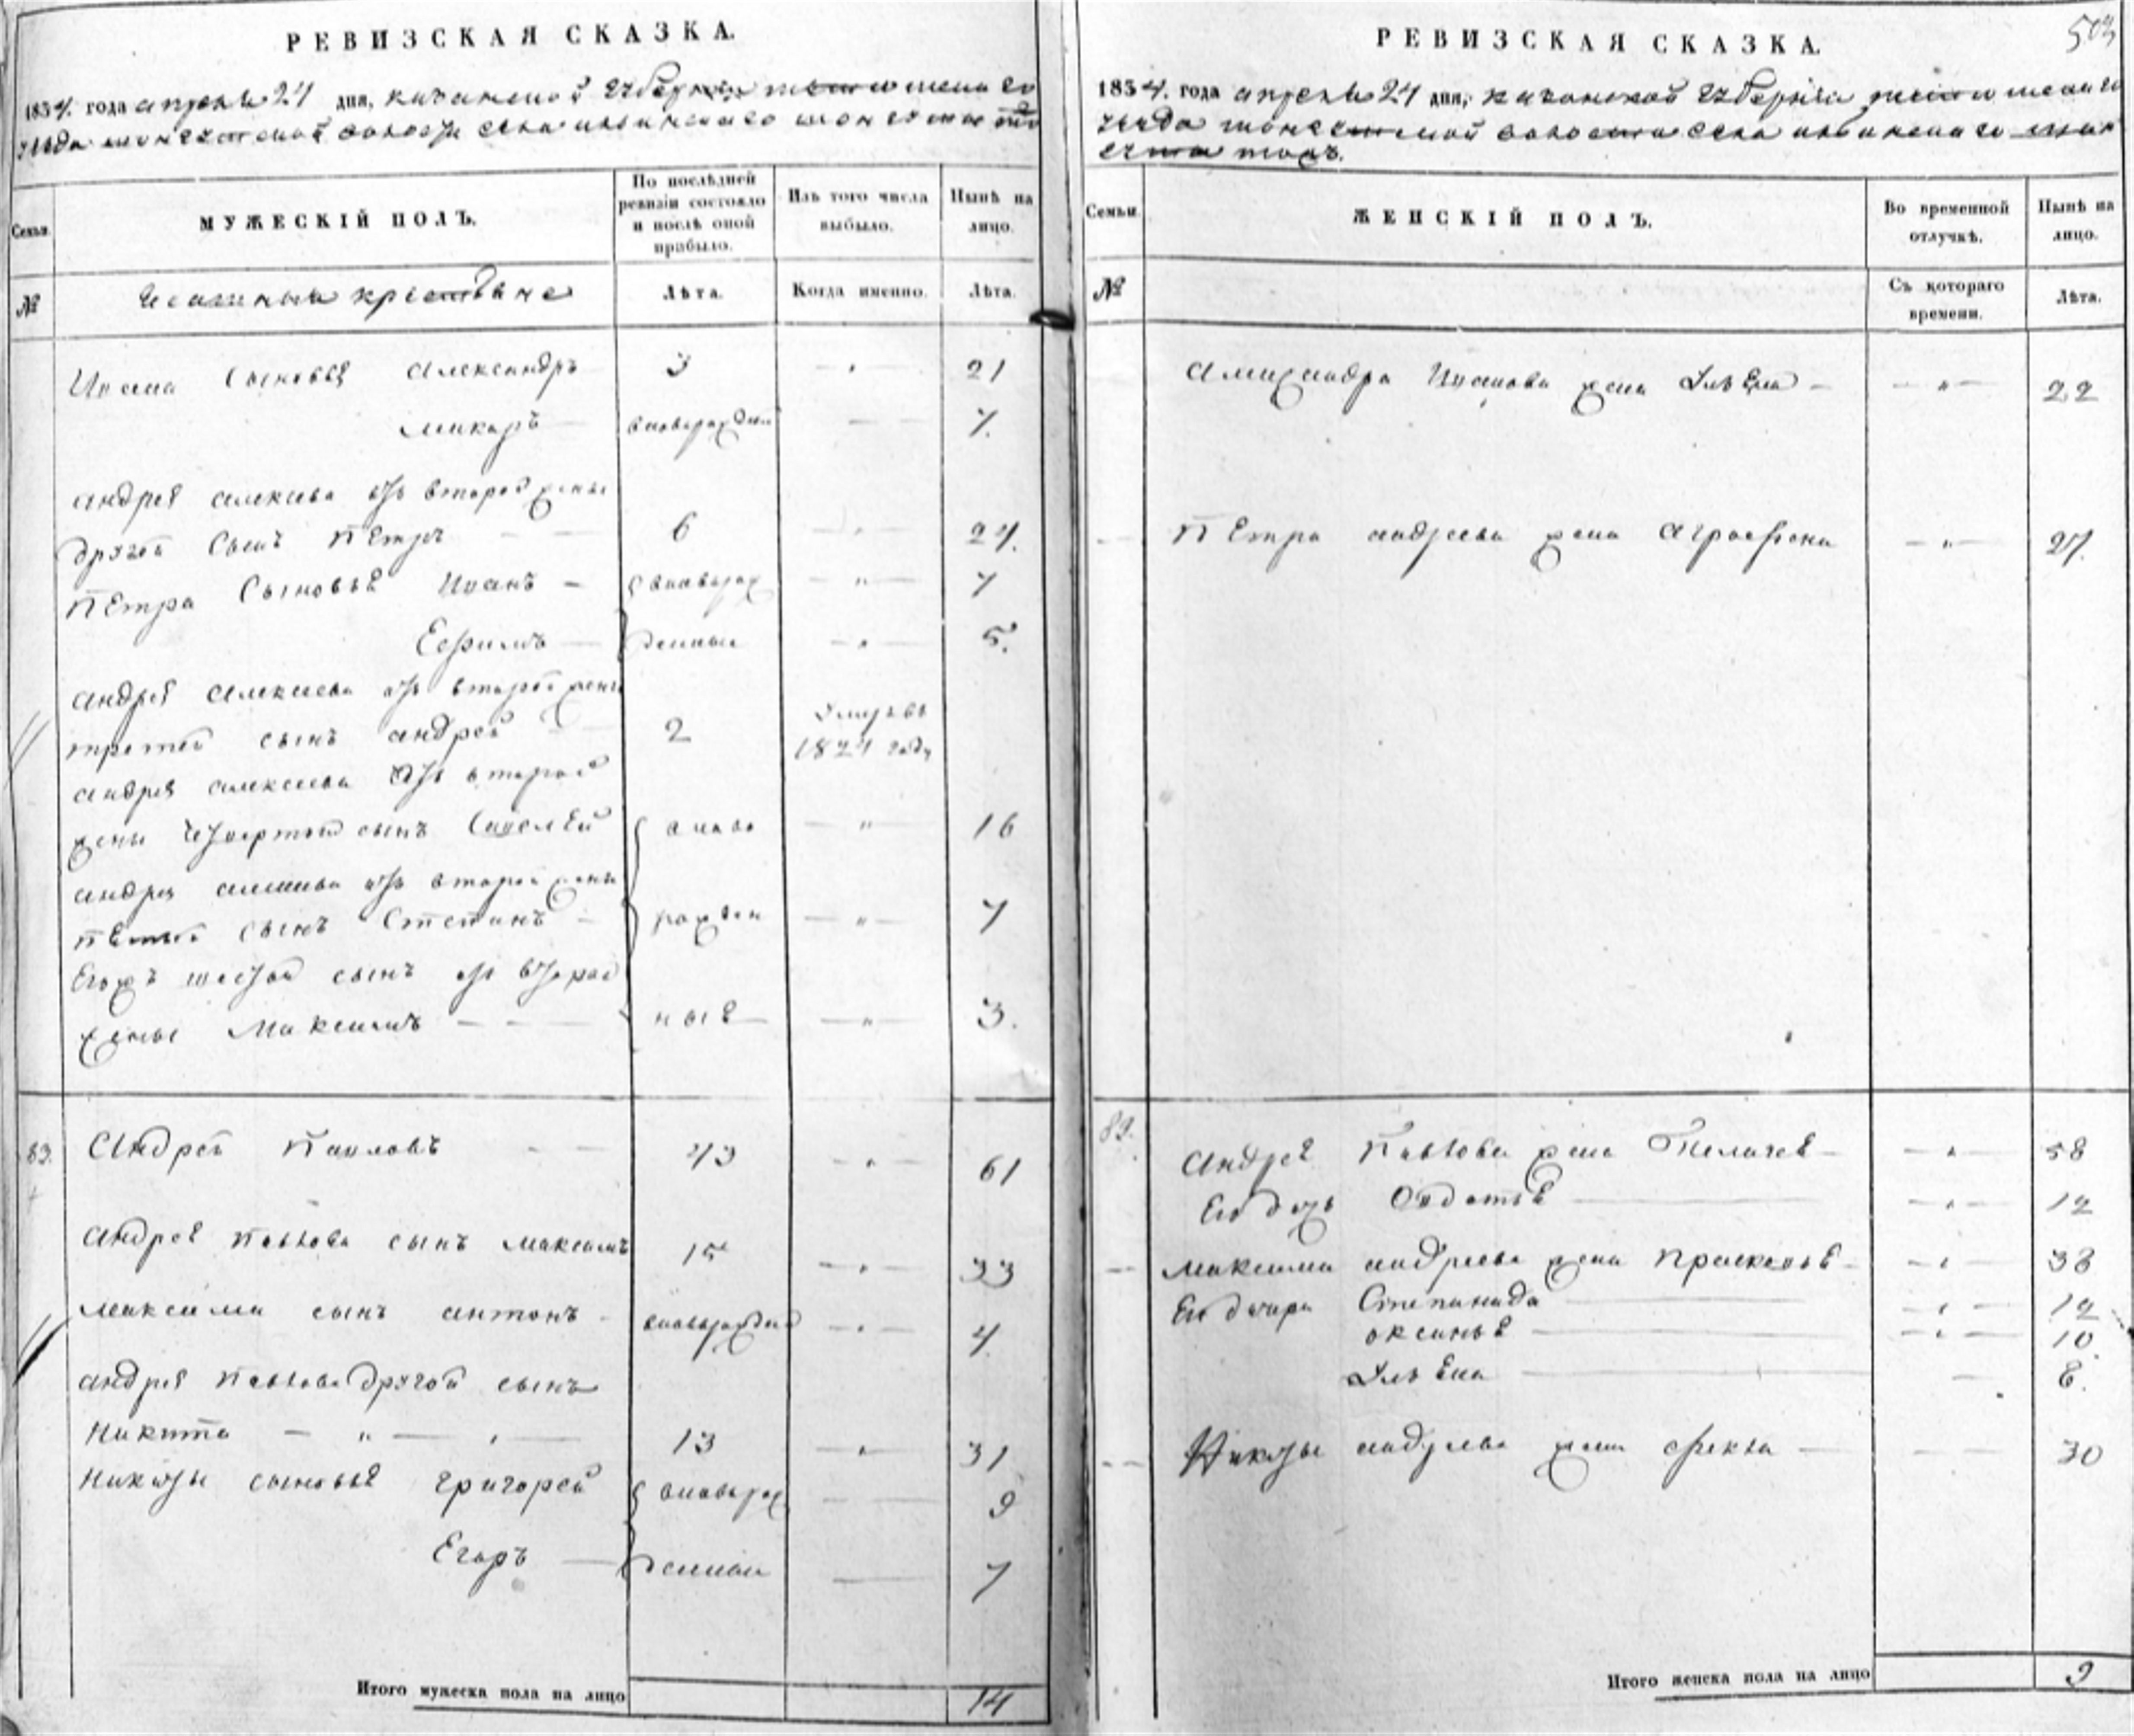 РЕВИЗСКАЯ СКАЗКА.
1834. года апреля 24 дня, казанской губернии
уезда волости села
Семьи.
МУЖЕСКІЙ ПОЛЪ.
По послѣдней ревизіи состояло и послѣ оной прибыло.
Изъ того числа выбыло.
Нынѣ на лицо.
№
крестьяне
Лѣта.
Когда именно.
Лѣта.
Ивана сыновья Александръ 3 — 21
Макаръ — 7.
андрея алексеева отъ второй жены
другой сынъ петръ 6 24.
петра сыновья Иванъ — " — 7
Ефимъ — " — 5.
андрея алексеева отъ второй жены
третей сынъ андрей 2 умеръ въ 1821 году
андрея алексеева отъ второй
жены четвертой сынъ Савелей вново — " — 16
андрея алексеева отъ второй жены
пятый сынъ Степанъ рожден — " — 7
Егожъ шестой сынъ отъ второй
жены Максимъ ные — " — 3.
83. Андрей Павловъ 43 — " — 61
Андрея павлова сынъ максимъ 15 — " — 33
максима сынъ антонъ — " — 4
андрея павлова другой сынъ
Никита 13 — " — 31
Никиты сыновья григорей — 9
Егоръ — 7
Итого мужеска пола на лицо 14
503
РЕВИЗСКАЯ СКАЗКА.
1834. года апреля 24 дня, казанской губерніи
уезда волости села
Семьи.
ЖЕНСКІЙ ПОЛЪ.
Во временной отлучкѣ.
Нынѣ на лицо.
№
Съ котораго времени.
Лѣта.
Александра Иванова жена Ульяна — " — 22
Петра андреева жена Аграфена — " — 27.
83. Андрея Павлова жена — " — 58
Его дочь Овдотья — " — 12
максима андреева жена прасковья — " — 38
Его дочери Степанида — " — 12
оксинья — " — 10
Ульяна — 8.
Никиты андреева жена фекла — 30
Итого женска пола на лицо 9